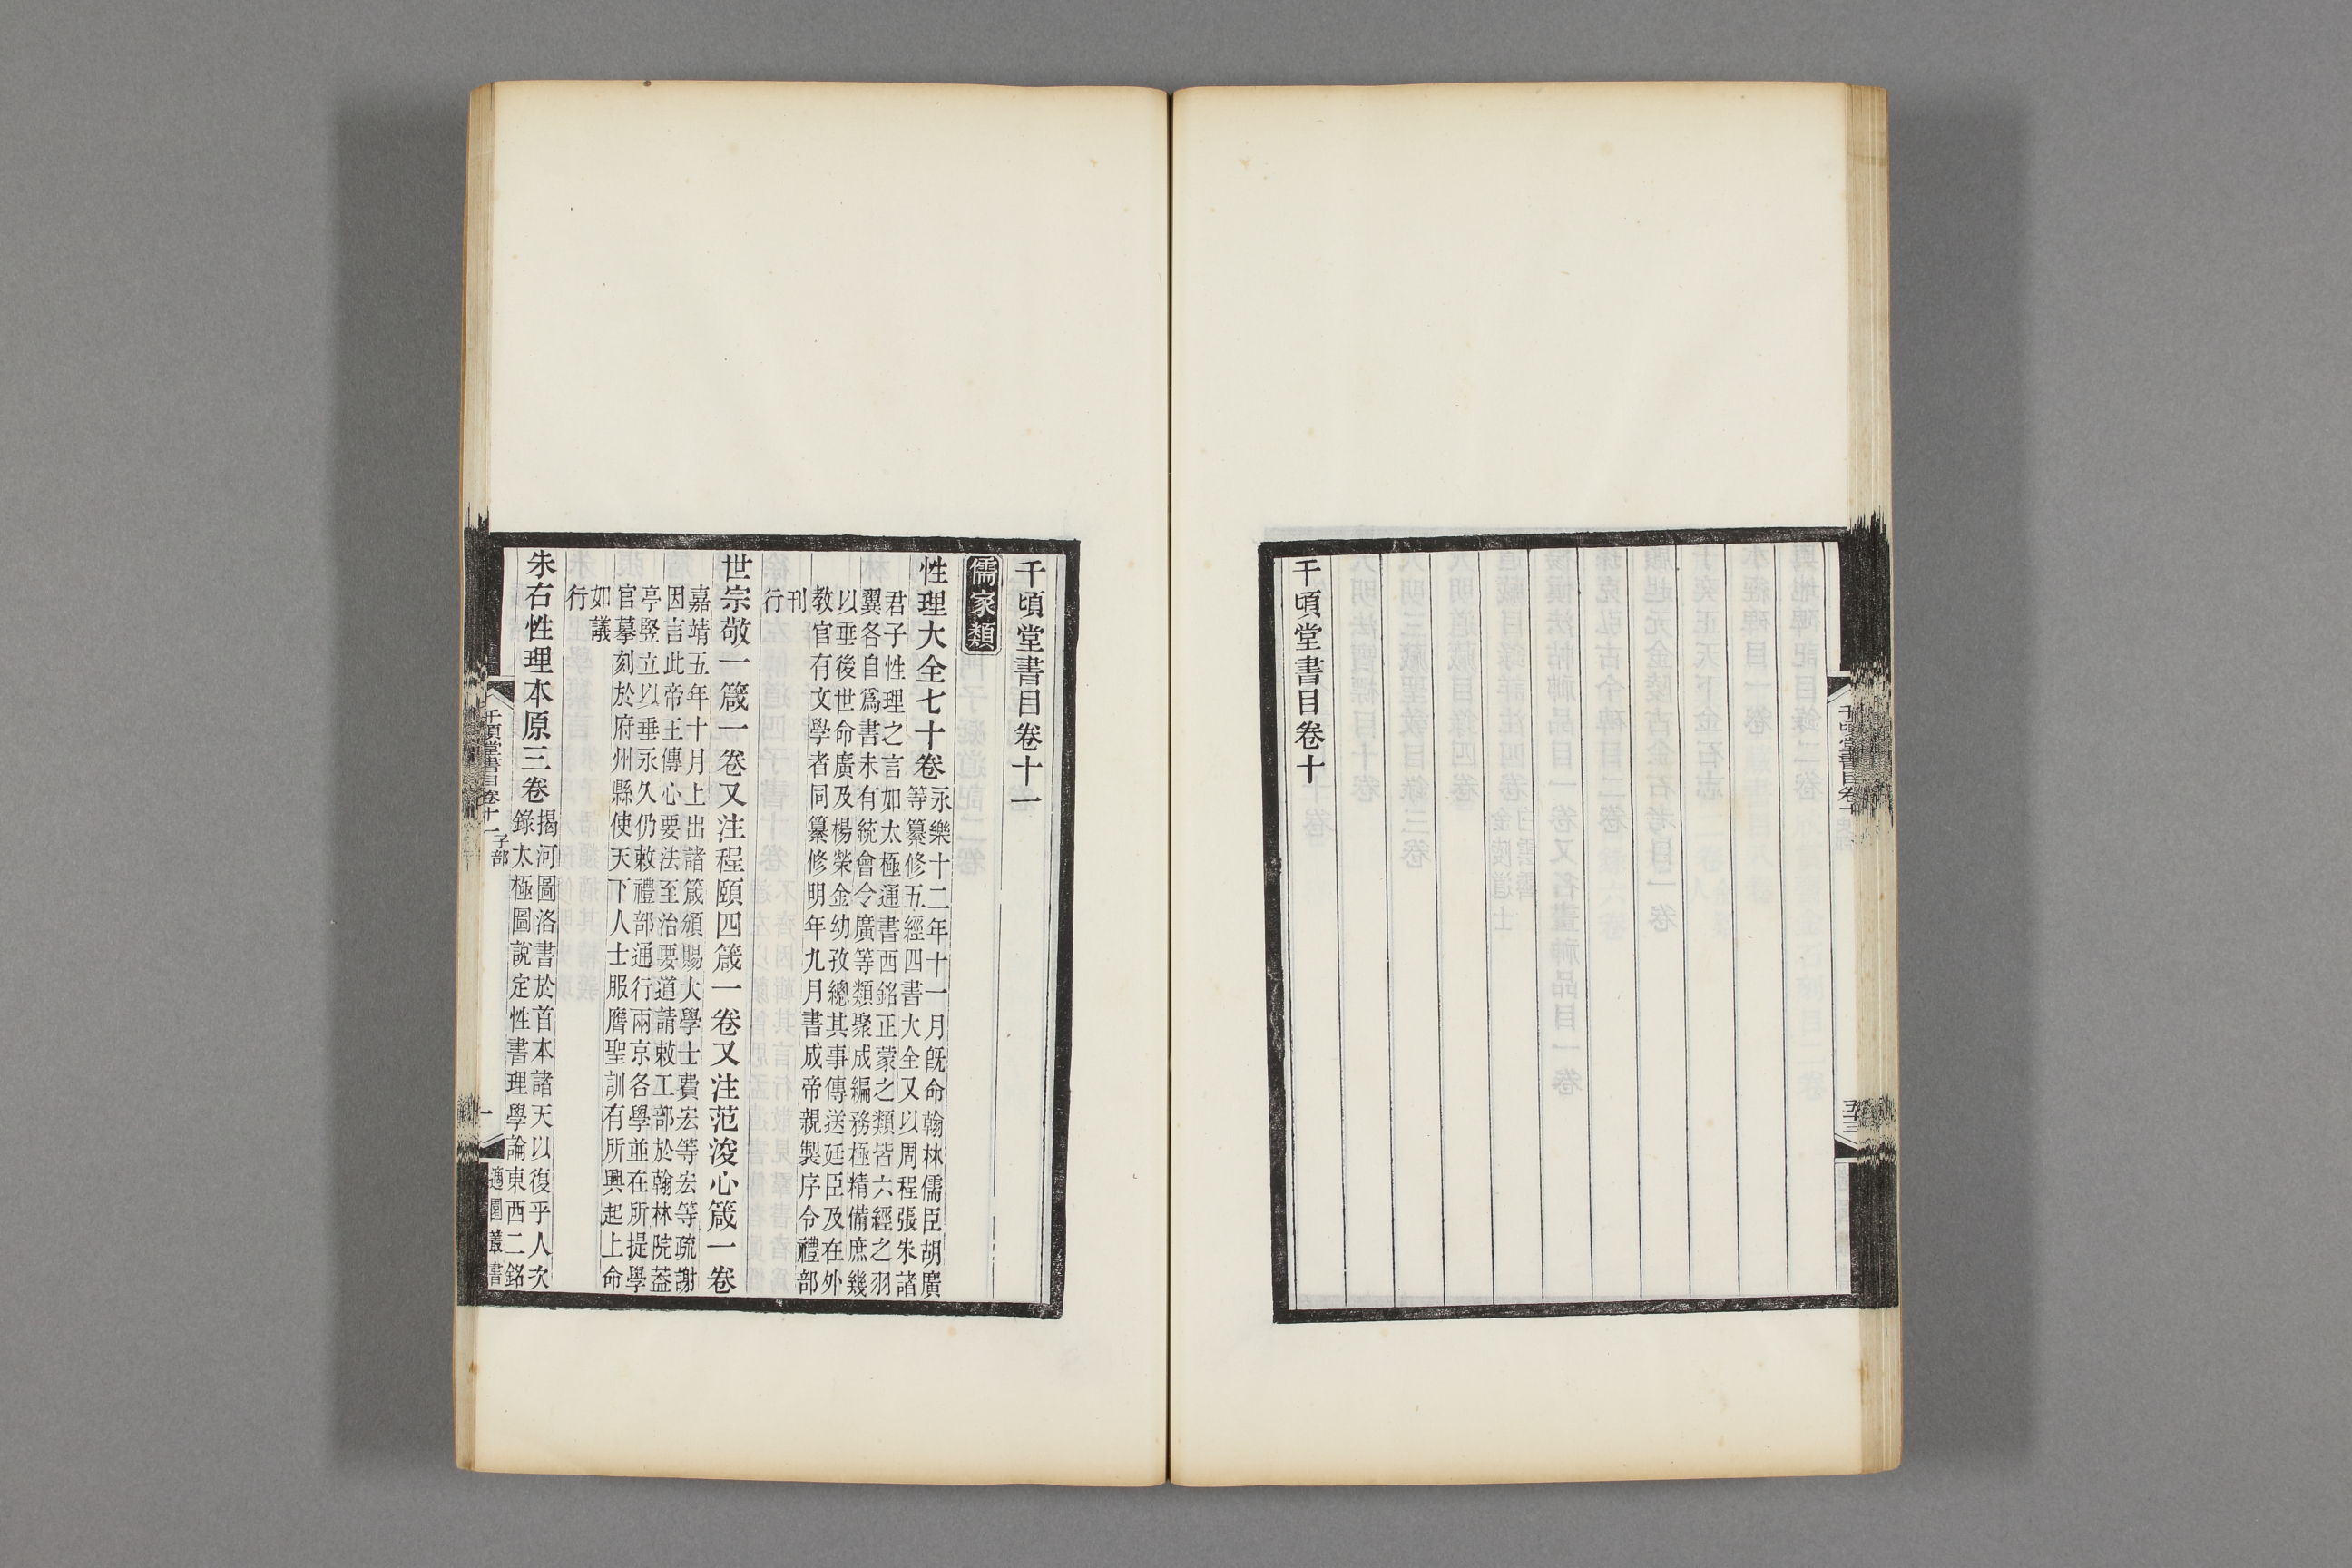 千頃堂書目卷十
千頃堂書目卷十一
儒家類
性理大全七十卷
永樂十二年十一月旣命翰林儒臣胡廣
等纂修五經四書大全又以周程張朱諸
君子性理之言如太極通書西銘正蒙之類皆六經之羽
翼各自爲書未有統會令廣等類聚成編務極精備庶幾
以垂後世命廣及楊榮金幼孜總其事傳送廷臣及在外
教官有文學者同纂修明年九月書成帝親製序令禮部
刊
行
世宗敬一箴一卷又注程頤四箴一卷又注范浚心箴一卷
嘉靖五年十月上出諸箴頒賜大學士費宏等宏等疏謝
因言此帝王傳心要法至治要道請敕工部於翰林院葢
亭竪立以垂永久仍敕禮部通行兩京各學並在所提學
官摹刻於府州縣使天下人士服膺聖訓有所興起上命
如議
行
朱右性理本原三卷
揭河圖洛書於首本諸天以復乎人次
錄太極圖說定性書理學論東西二銘
千頃堂書目卷十一
子部
一
適園叢書